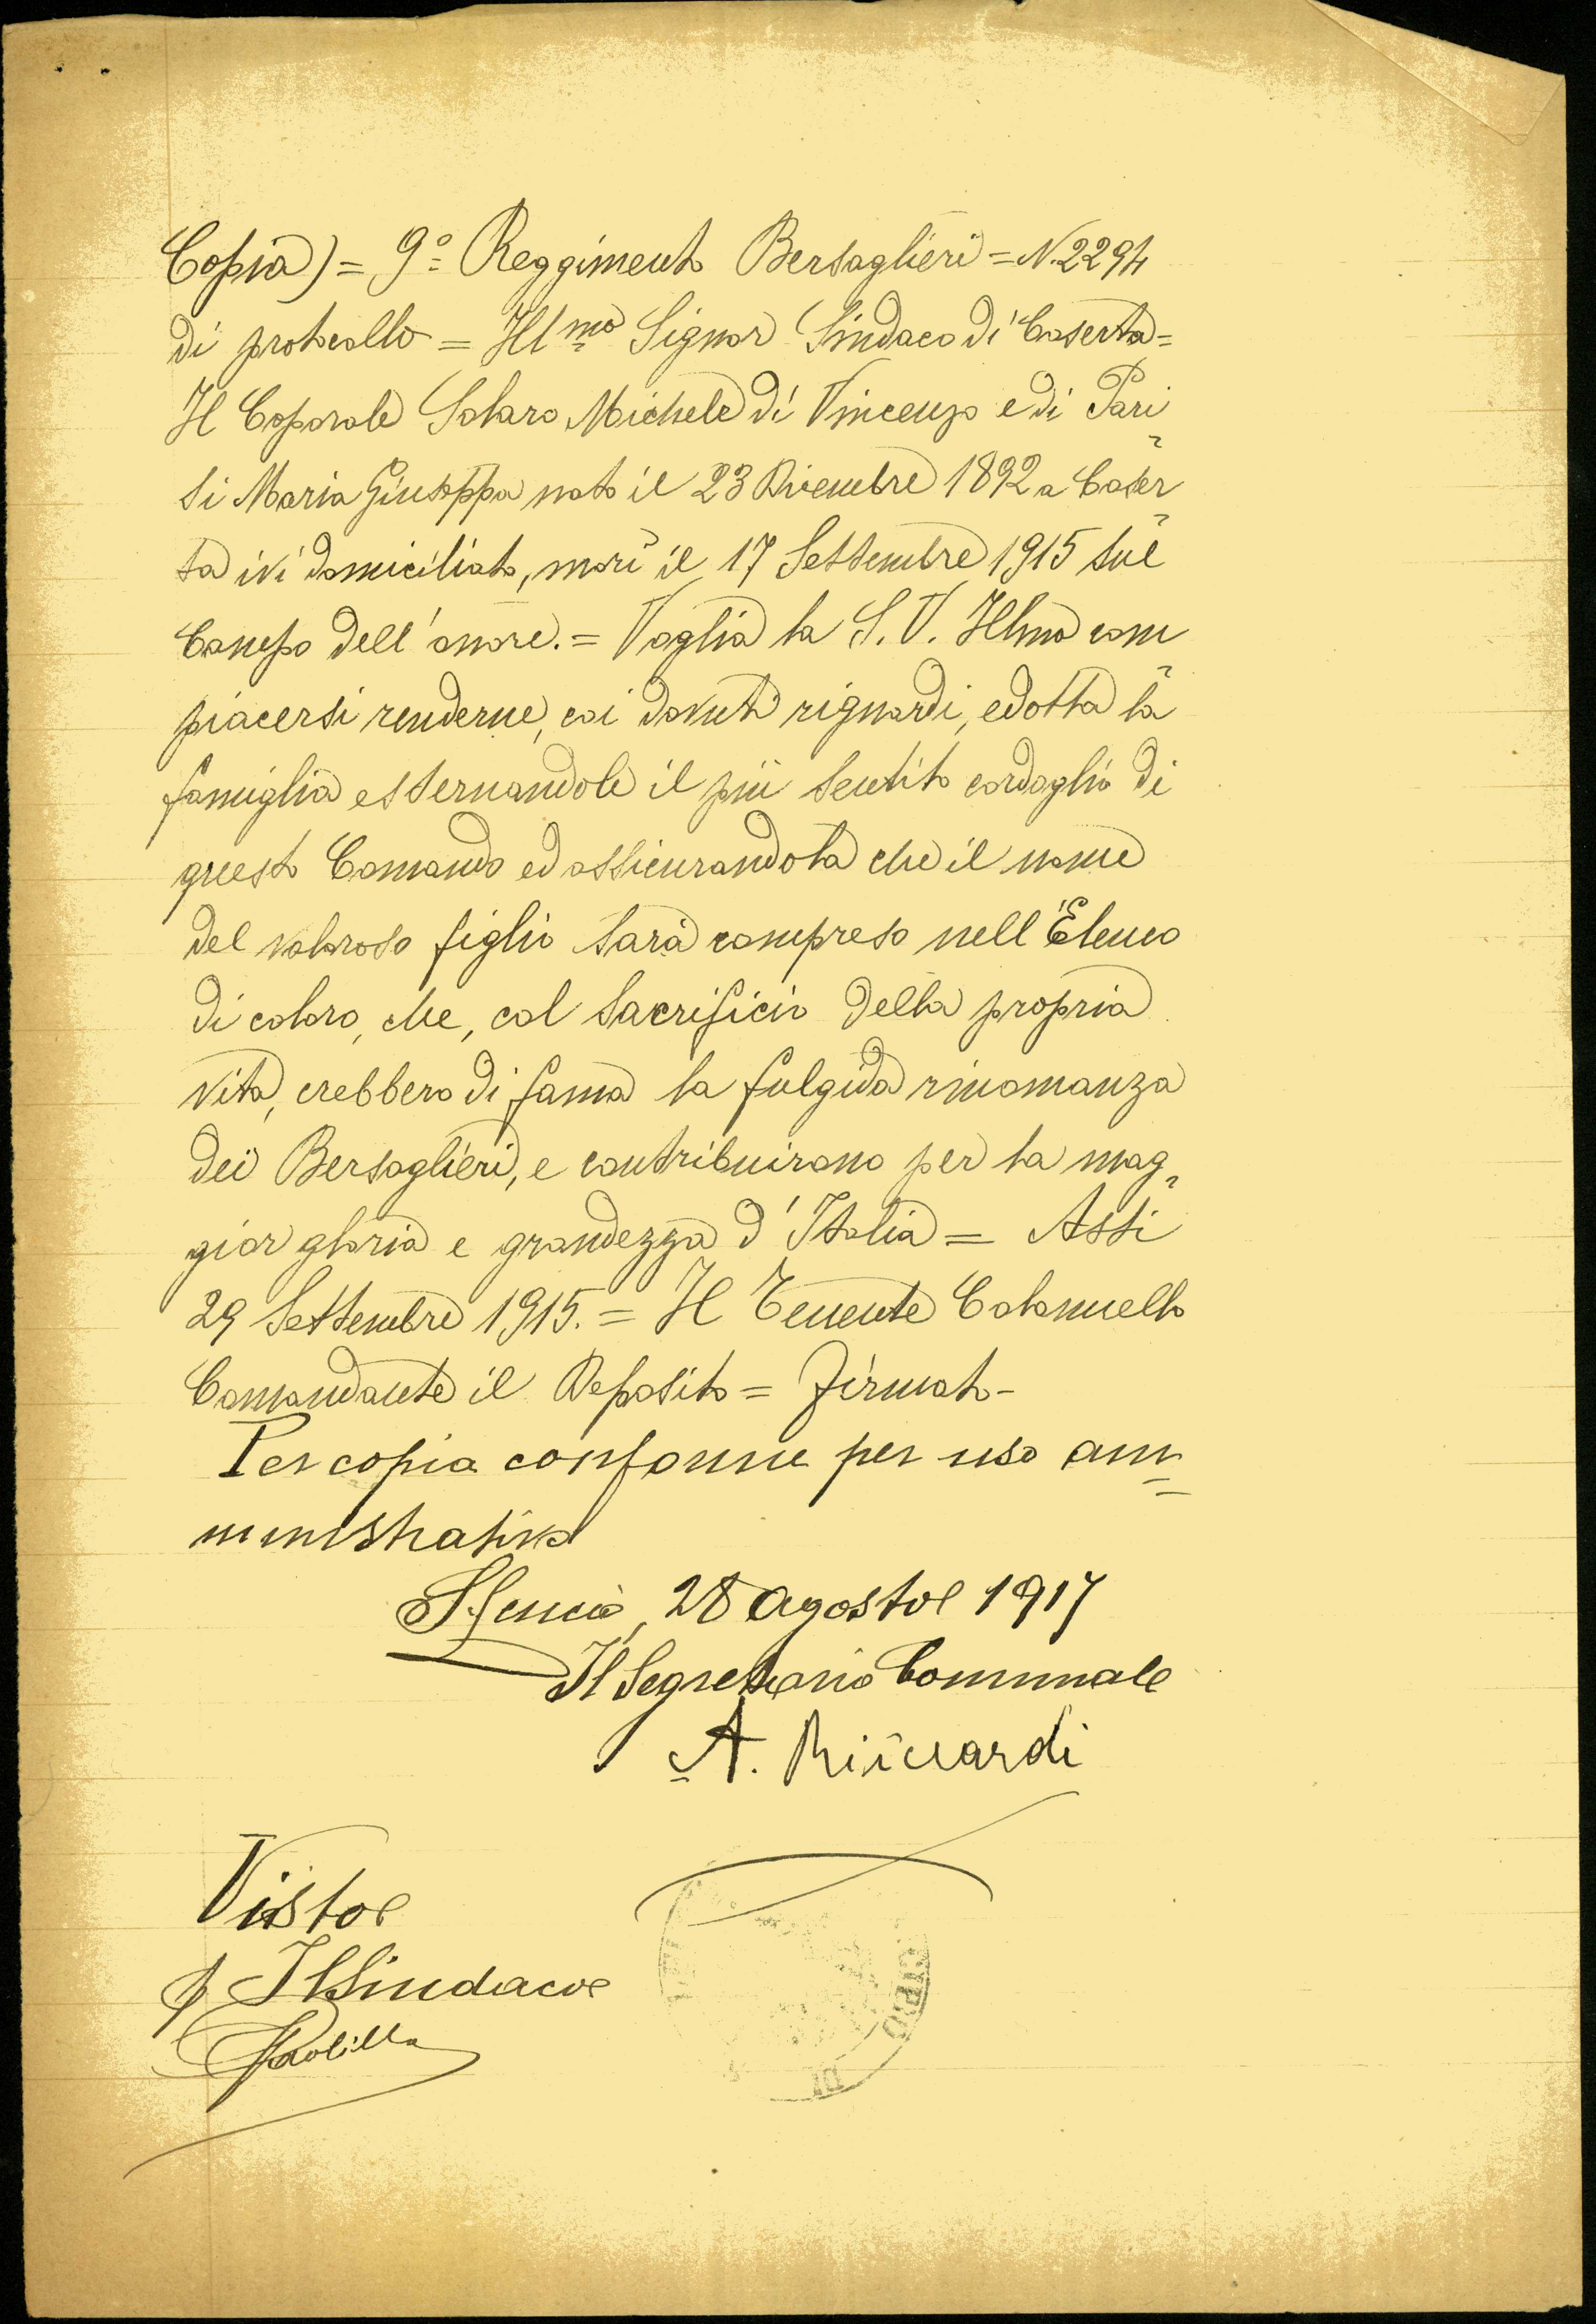 Copia) = 9º Reggimento Bersaglieri = N. 2294
di protocollo = Ill.mo Signor Sindaco di Caserta =
Il Caporale Solaro Michele di Vincenzo e di Pari-
si Maria Giuseppa nato il 23 Dicembre 1892 a Caser-
ta ivi domiciliato, morì il 17 Settembre 1915 sul
Campo dell'onore. = Voglia la S. V. Illma com-
piacersi renderne, coi dovuti riguardi, edotta la
famiglia esternandole il più sentito cordoglio di
questo Comando ed assicurandola che il nome
del valoroso figlio sarà compreso nell'Elenco
di coloro, che, col sacrificio della propria
vita, crebbero di fama la fulgida rinomanza
dei Bersaglieri, e contribuirono per la mag-
gior gloria e grandezza d'Italia = Asti
29 Settembre 1915. = Il Tenente Colonnello
Comandante il Deposito = Firmato -
Per copia conforme per uso am=
ministrativo
28 Agosto 1917
Il Segretario Comunale
A. Ricciardi
Visto
p Il Sindaco
Paolillo
CIPIO
DI